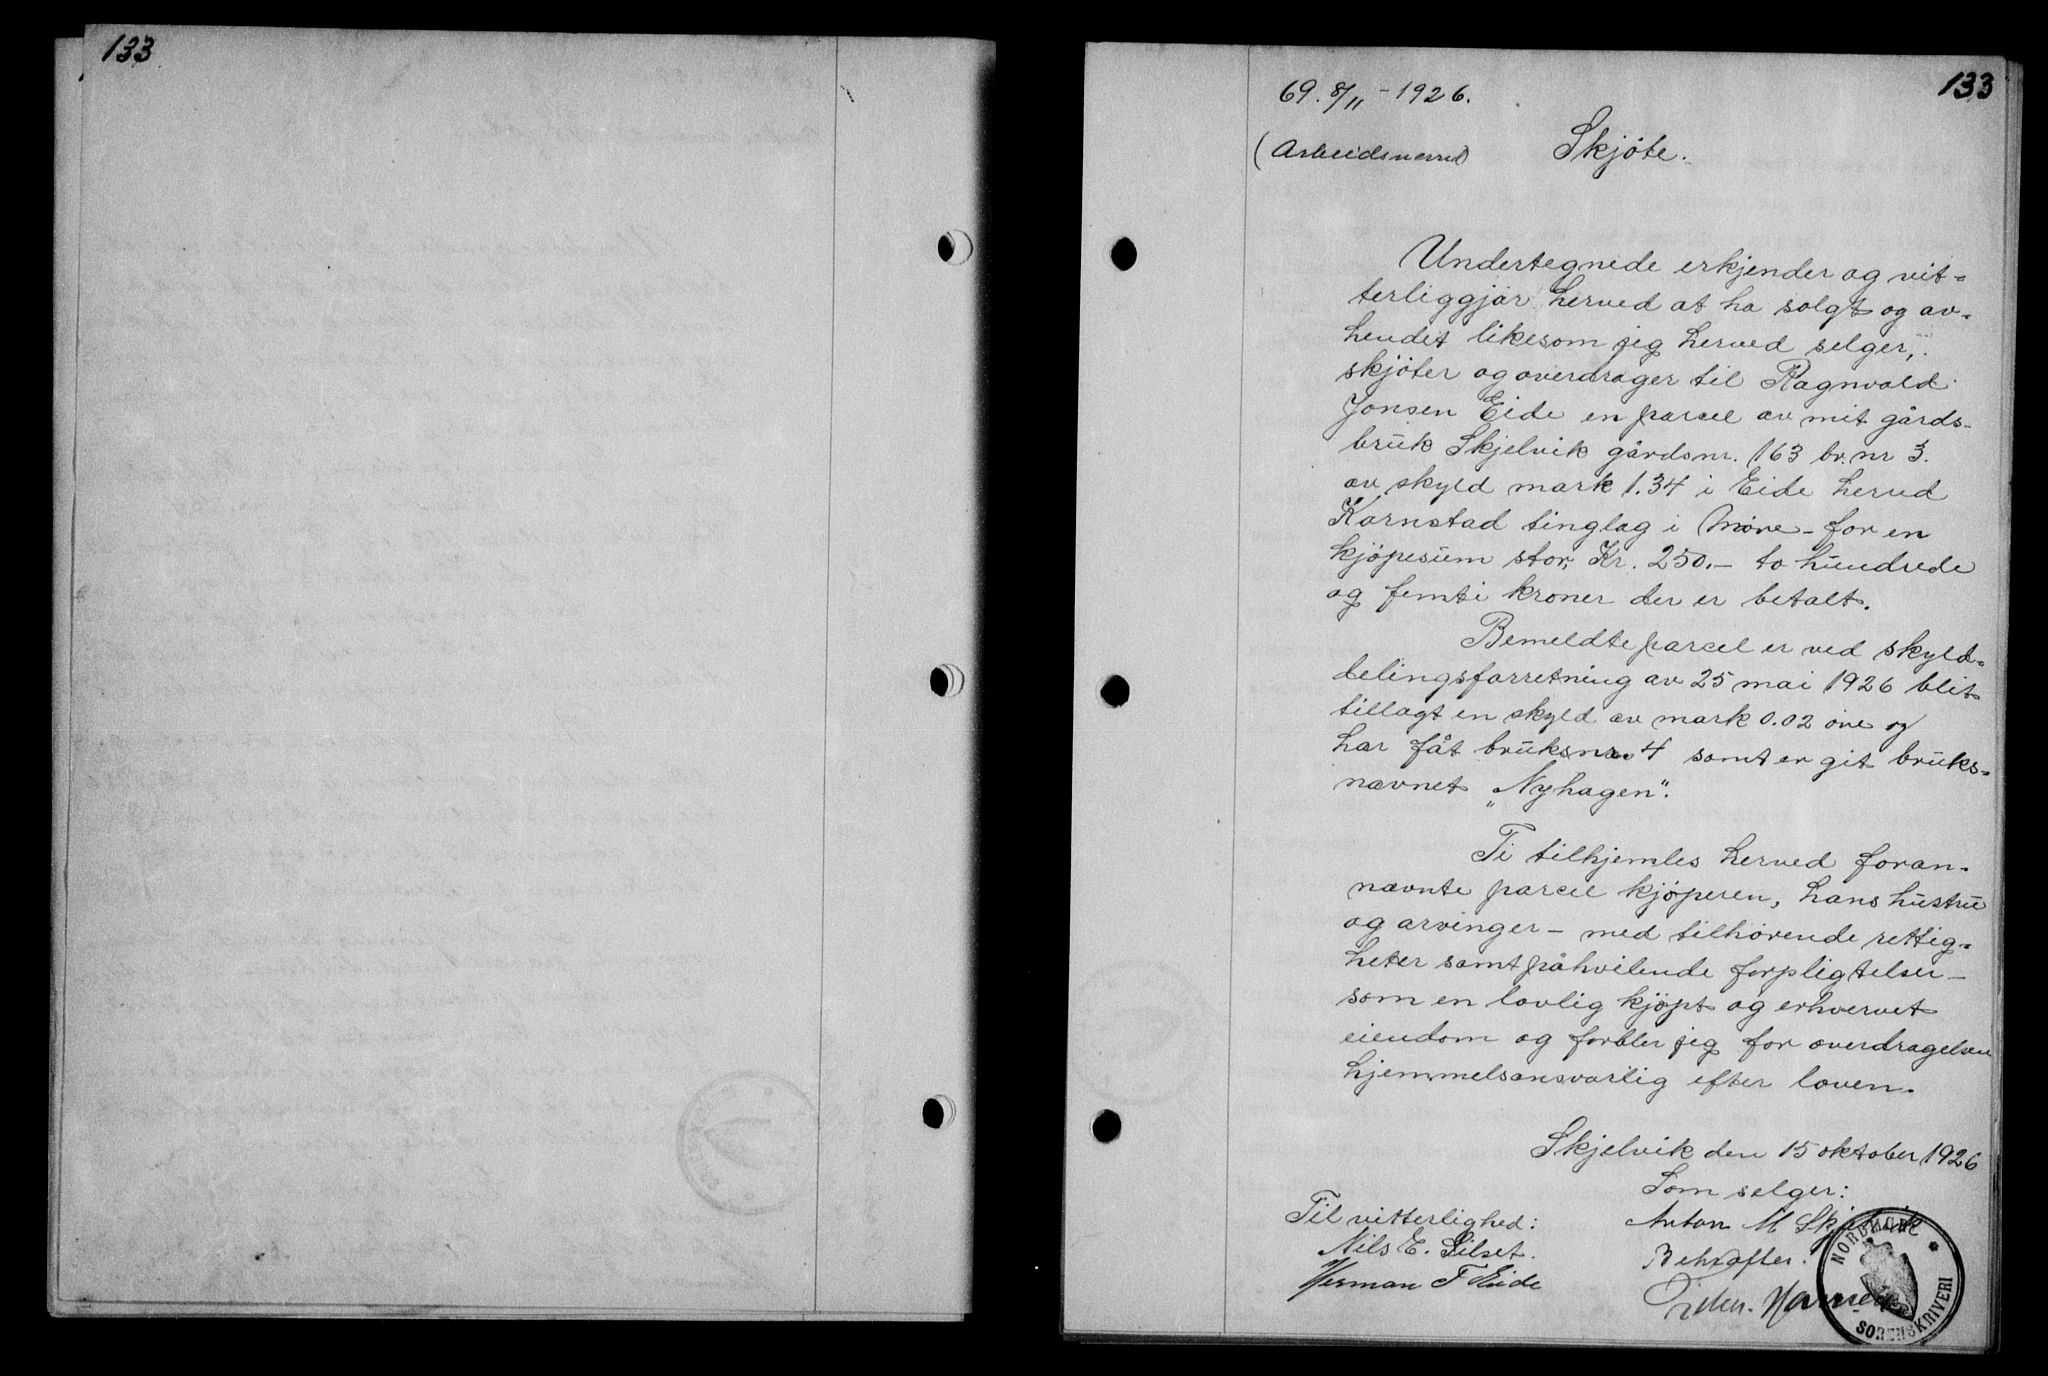 133
133
69. 8/11 - 1926.
(Arbeidsverd) Skjöte.
Undertegnede erkjender og vit-
terliggjör herved at ha solgt og av-
hendet likesom jeg herved selger,
skjöter og overdrager til Ragnvald
Jonsen Eide en parcel av mit gårds-
bruk Skjelvik gårdsnr. 163 br. nr 3.
av skyld mark 1.34 i Eide herred
Kornstad tinglag i Möre - for en
kjöpesum stor, Kr. 250.- to hundrede
og femti kroner der er betalt.
Bemeldte parcel er ved skyld-
delingsforretning av 25 mai 1926 blit
tillagt en skyld av mark 0.02 öre og
har fåt bruksnr. 4 samt er git bruks-
navnet „Nyhagen".
Ti tilhjemles herved foran-
nævnte parcel kjöperen, hans hustru
og arvinger - med tilhörende rettig-
heter samt påhvilende forpligtelser -
som en lovlig kjöpt og erhvervet
eiendom og forbler jeg for overdragelsen
hjemmelsansvarlig efter loven.
Skjelvik den 15 oktober 1926
Som selger:
Til vitterlighed: Anton M Skjelvik
Nils E. Silset. Bekræfter.
Herman T Eide
NORDMÖRE
SORENSKRIVERI